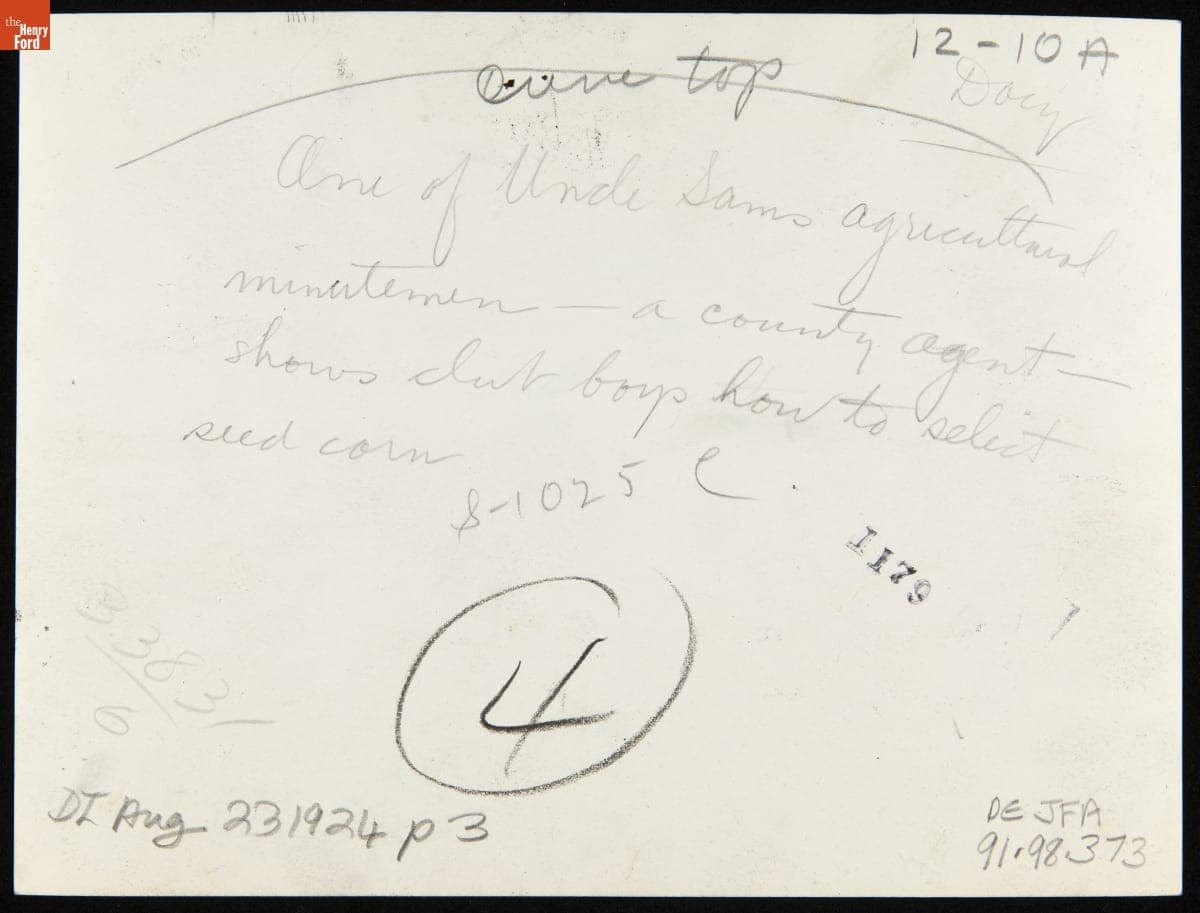 the
Henry
Ford
12-10A
curve top
One of Uncle Sams agricultural
minutemen — a county agent —
shows club boys how to select
seed corn
S-1025 C
1179
4
DI Aug 23 1924 p 3
DE JFA
91.98.373